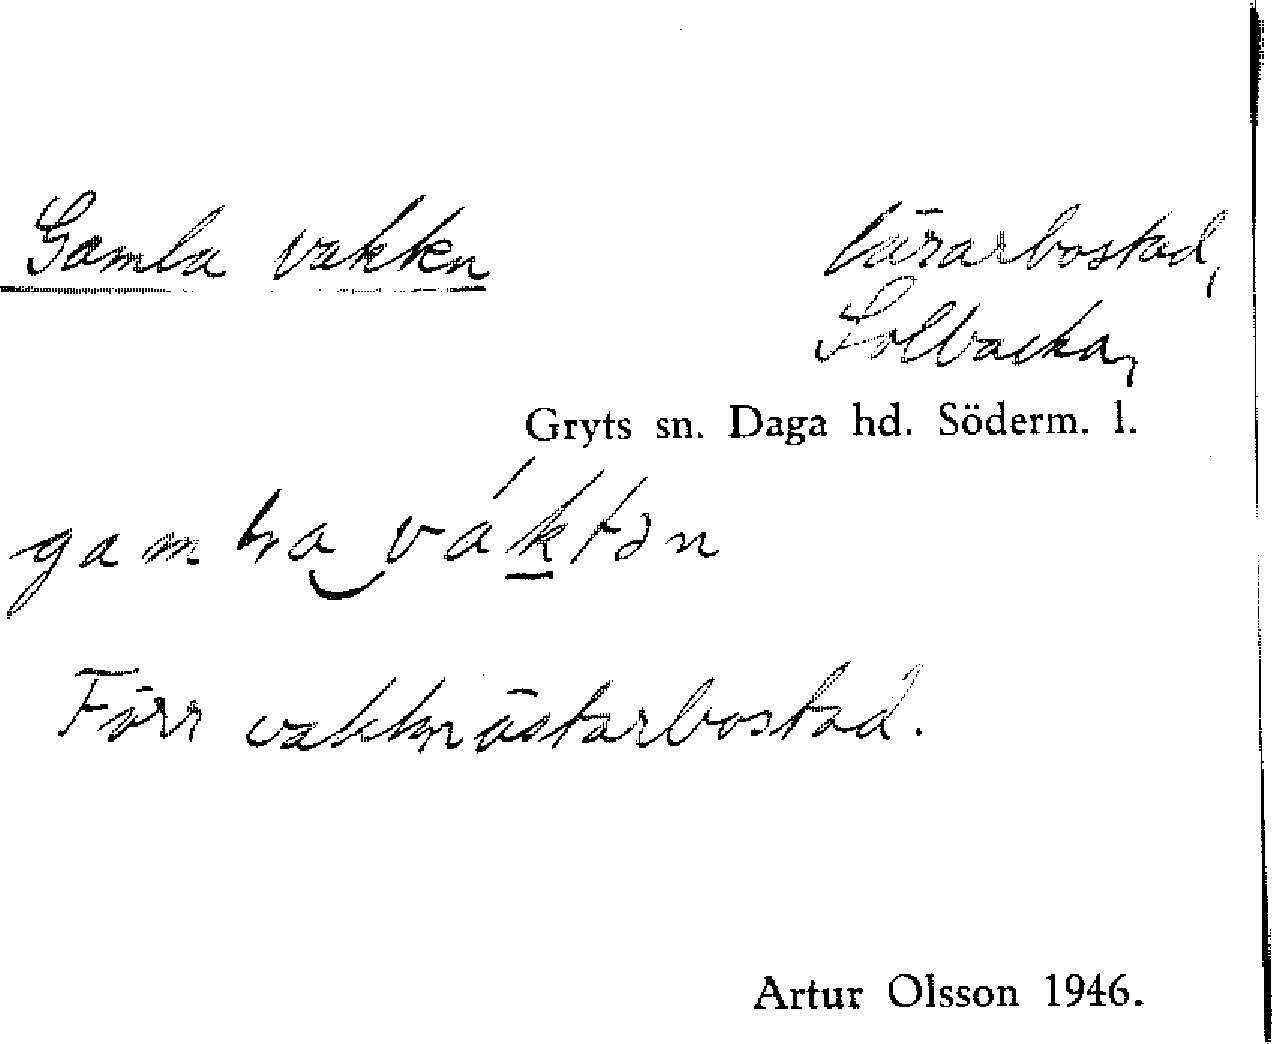 Gamla vakten
lärarbostad,
Solbacka,
Gryts sn. Daga hd. Söderm. l.
gamla váktən
Förr vaktmästarbostad.
Artur Olsson 1946.